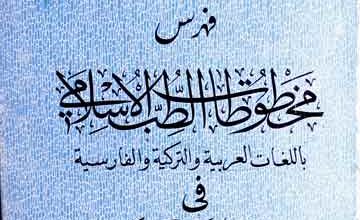 فهرس
مخطوطات الطب الإسلامي
باللغات العربية والتركية والفارسية
في